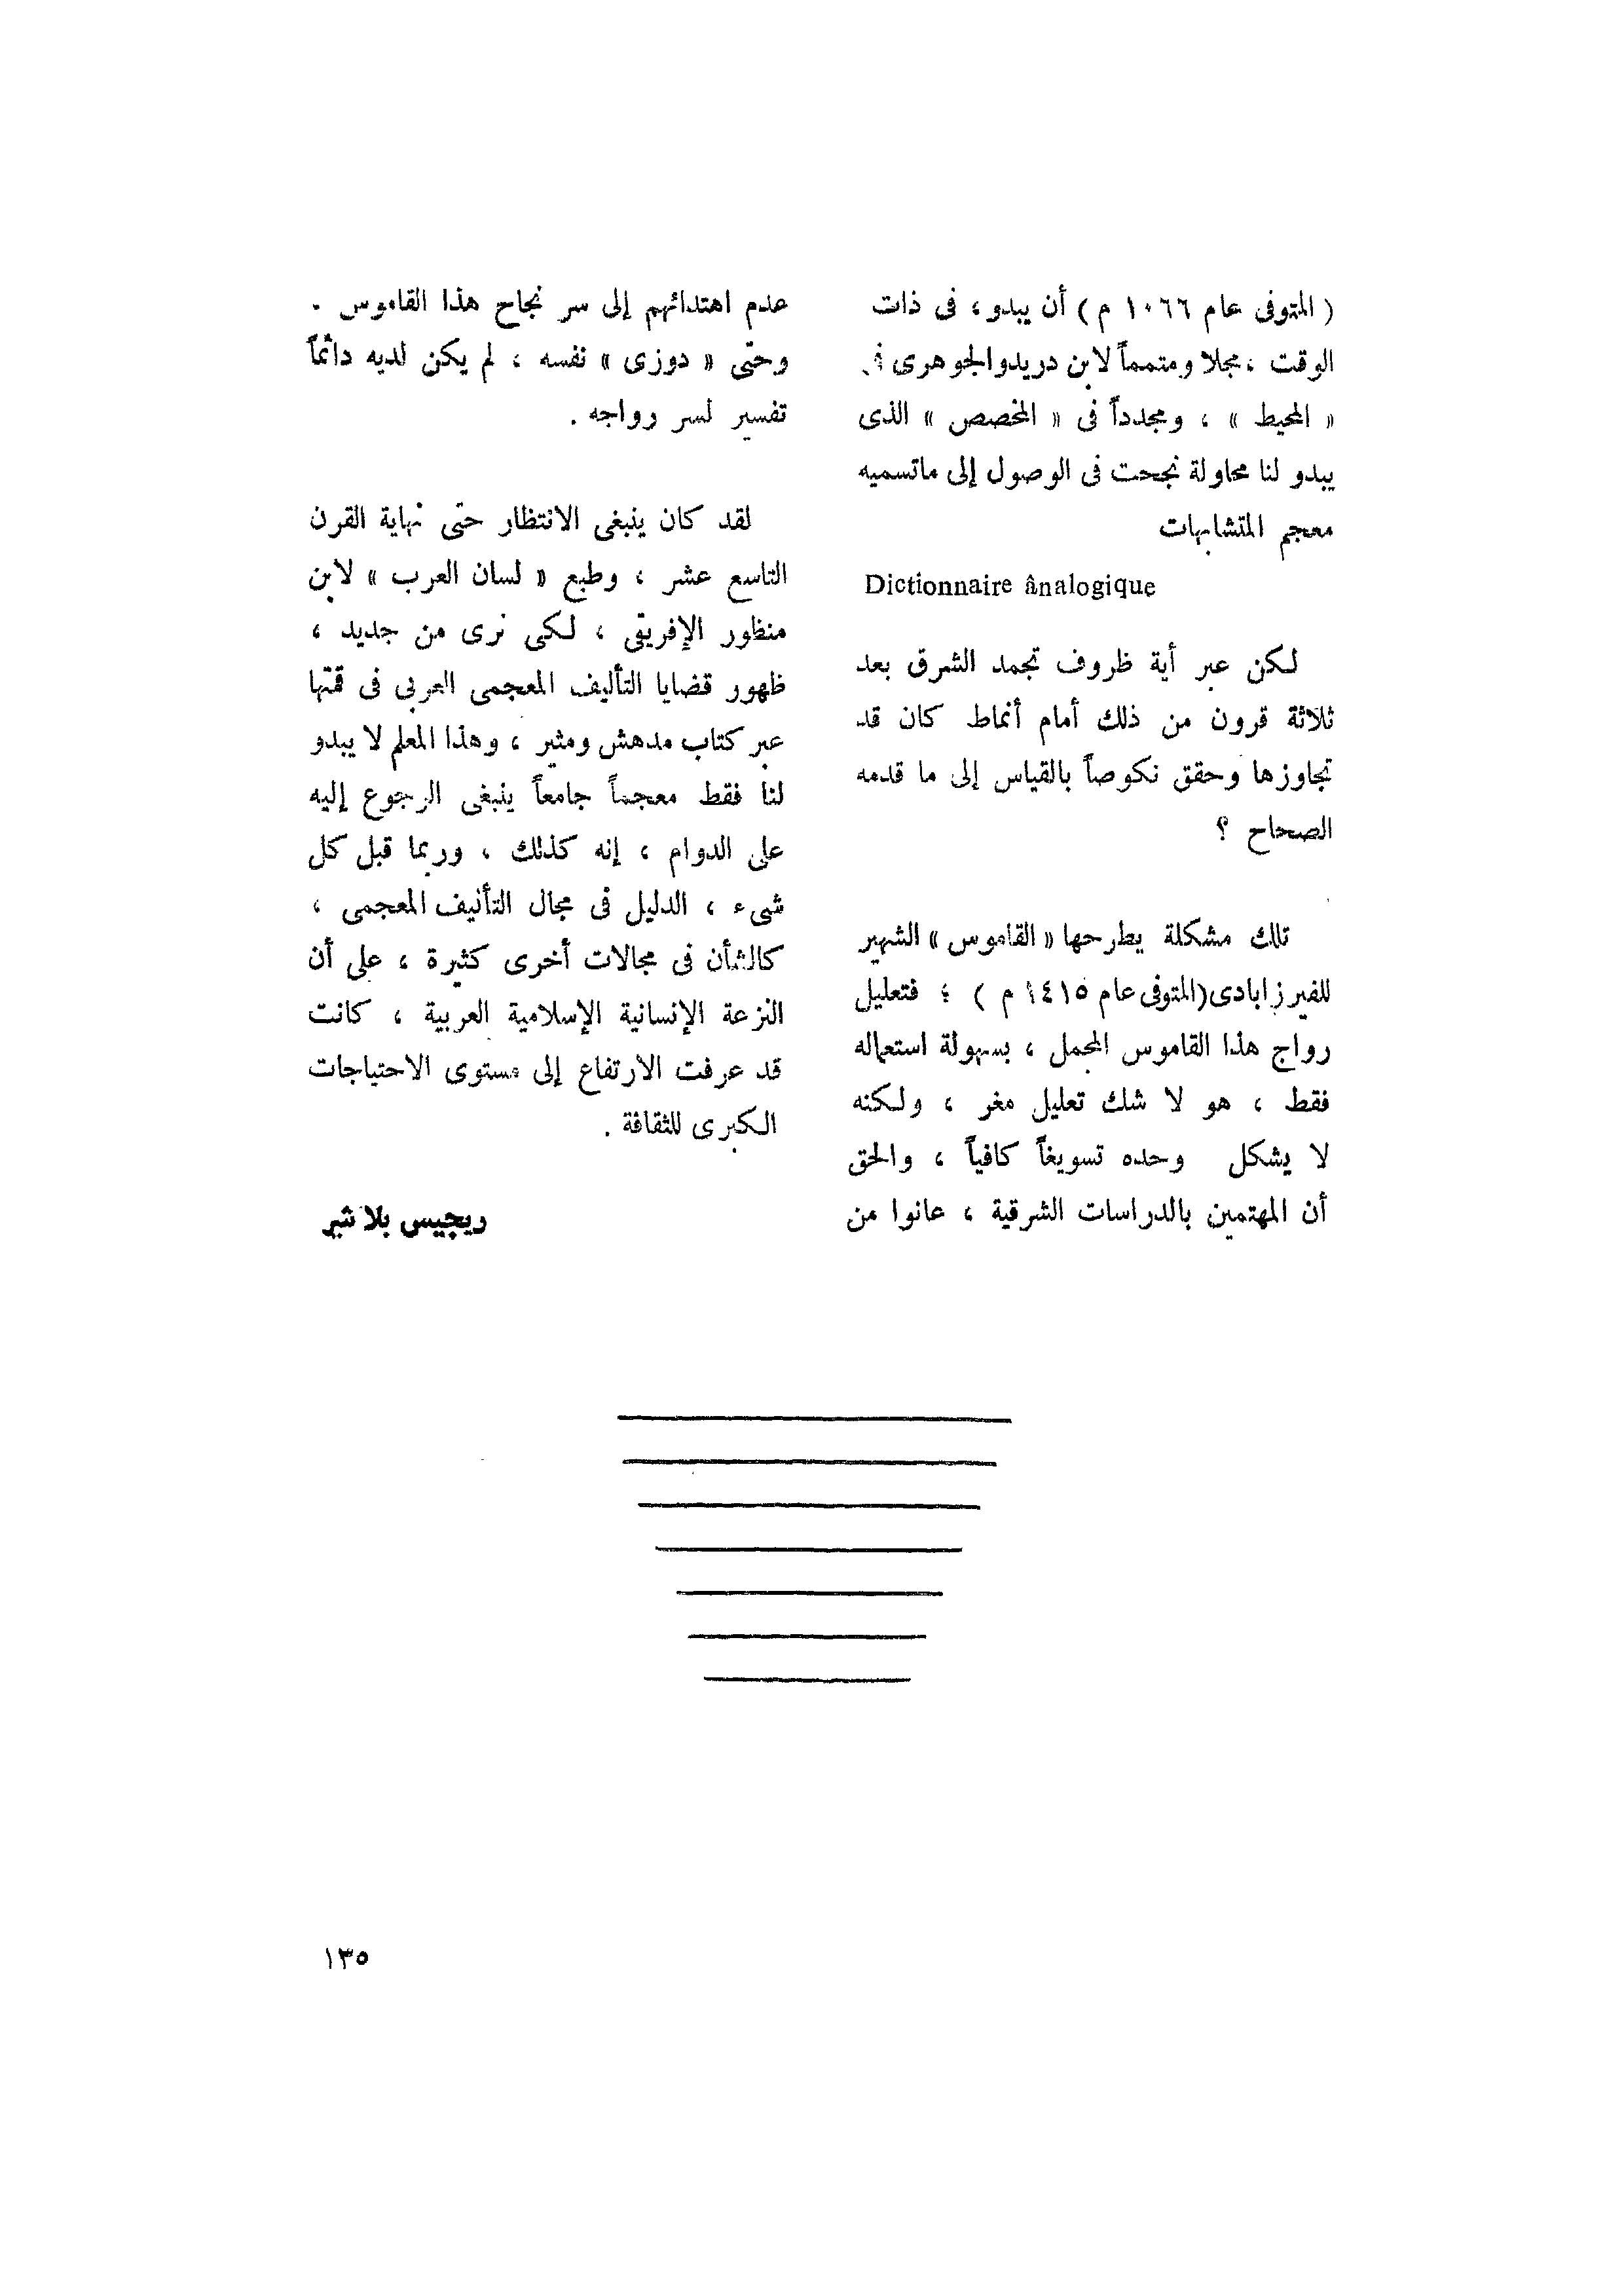 ( المتوفى عام ١٠٦٦ م ) أن يبدو ، فى ذات
الوقت ، مجلا ومتمماً لابن دريد والجوهرى فى
« المحيط » ، ومجدداً فى « المخصص » الذى
يبدو لنا محاولة نجحت فى الوصول إلى ماتسميه
معجم المتشابهات
Dictionnaire ânalogique
لكن عبر أية ظروف تجمد الشرق بعد
ثلاثة قرون من ذلك أمام أنماط كان قد
تجاوزها وحقق نكوصاً بالقياس إلى ما قدمه
الصحاح ؟
تلك مشكلة يطرحها « القاموس » الشهير
للفيرزابادى (المتوفى عام ١٤١٥ م ) ؛ فتعليل
رواج هذا القاموس المجمل ، بسهولة استعماله
فقط ، هو لا شك تعليل مغر ، ولكنه
لا يشكل وحده تسويغاً كافياً ، والحق
أن المهتمين بالدراسات الشرقية ، عانوا من
عدم اهتدائهم إلى سر نجاح هذا القاموس .
وحتى « دوزى » نفسه ، لم يكن لديه دائماً
تفسير لسر رواجه .
لقد كان ينبغى الانتظار حتى نهاية القرن
التاسع عشر ، وطبع « لسان العرب » لابن
منظور الإفريقى ، لكى نرى من جديد ،
ظهور قضايا التأليف المعجمى العربى فى قمتها
عبر كتاب مدهش ومثير ، وهذا المعلم لا يبدو
لنا فقط معجماً جامعاً ينبغى الرجوع إليه
على الدوام ، إنه كذلك ، وربما قبل كل
شىء ، الدليل فى مجال التأليف المعجمى ،
كالشأن فى مجالات أخرى كثيرة ، على أن
النزعة الإنسانية الإسلامية العربية ، كانت
قد عرفت الارتفاع إلى مستوى الاحتياجات
الكبرى للثقافة .
ريجيس بلاشير
١٣٥